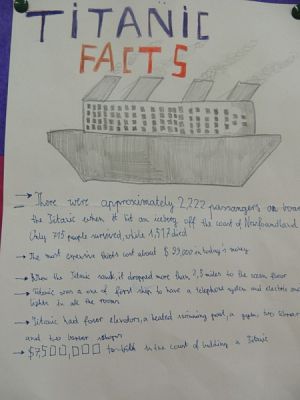 TITANIC
FACTS
There were approximately 2,222 passangers on board
the Titanic when it hit an iceberg off the coast of Newfoundland
Only 705 people survived, while 1,517 died
The most expensive tickets cost about $ 99,000 in today's money
When the Titanic sank, it dropped more than 2,5 miles to the ocean floor
Titanic was a one of first ships to have a telephone system and electric
lights in all the rooms
Titanic had four elevators, a heated swimming pool, a gym, two libraries
and two barber shops
$7,500,000 to is the cost of building a Titanic